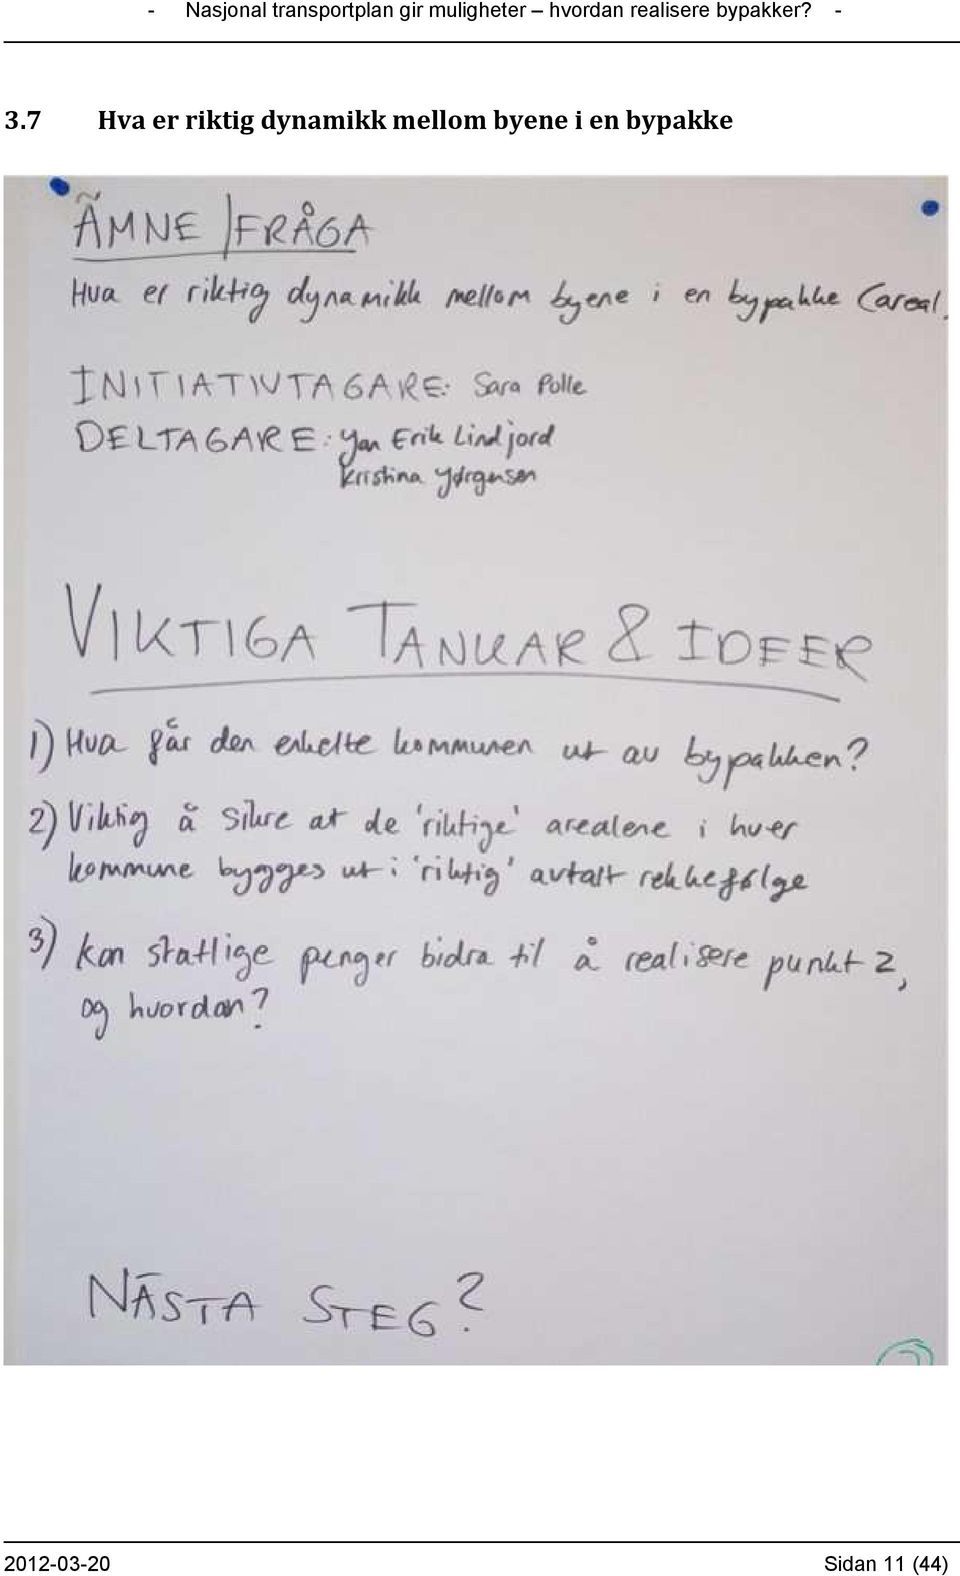 - Nasjonal transportplan gir muligheter – hvordan realisere bypakker? -
3.7 Hva er riktig dynamikk mellom byene i en bypakke
ÄMNE/FRÅGA
Hva er riktig dynamikk mellom byene i en bypakke (areal.
INITIATIVTAGARE: Sara Polle
DELTAGARE: Yan Erik Lindjord
Kristina Yørgensen
VIKTIGA TANKAR & IDEER
1) Hva får den enkelte kommunen ut av bypakken?
2) Viktig å sikre at de 'riktige' arealene i hver
kommune bygges ut i 'riktig' avtalt rekkefølge
3) Kan statlige penger bidra til å realisere punkt 2,
og hvordan?
NÄSTA STEG?
2012-03-20 Sidan 11 (44)